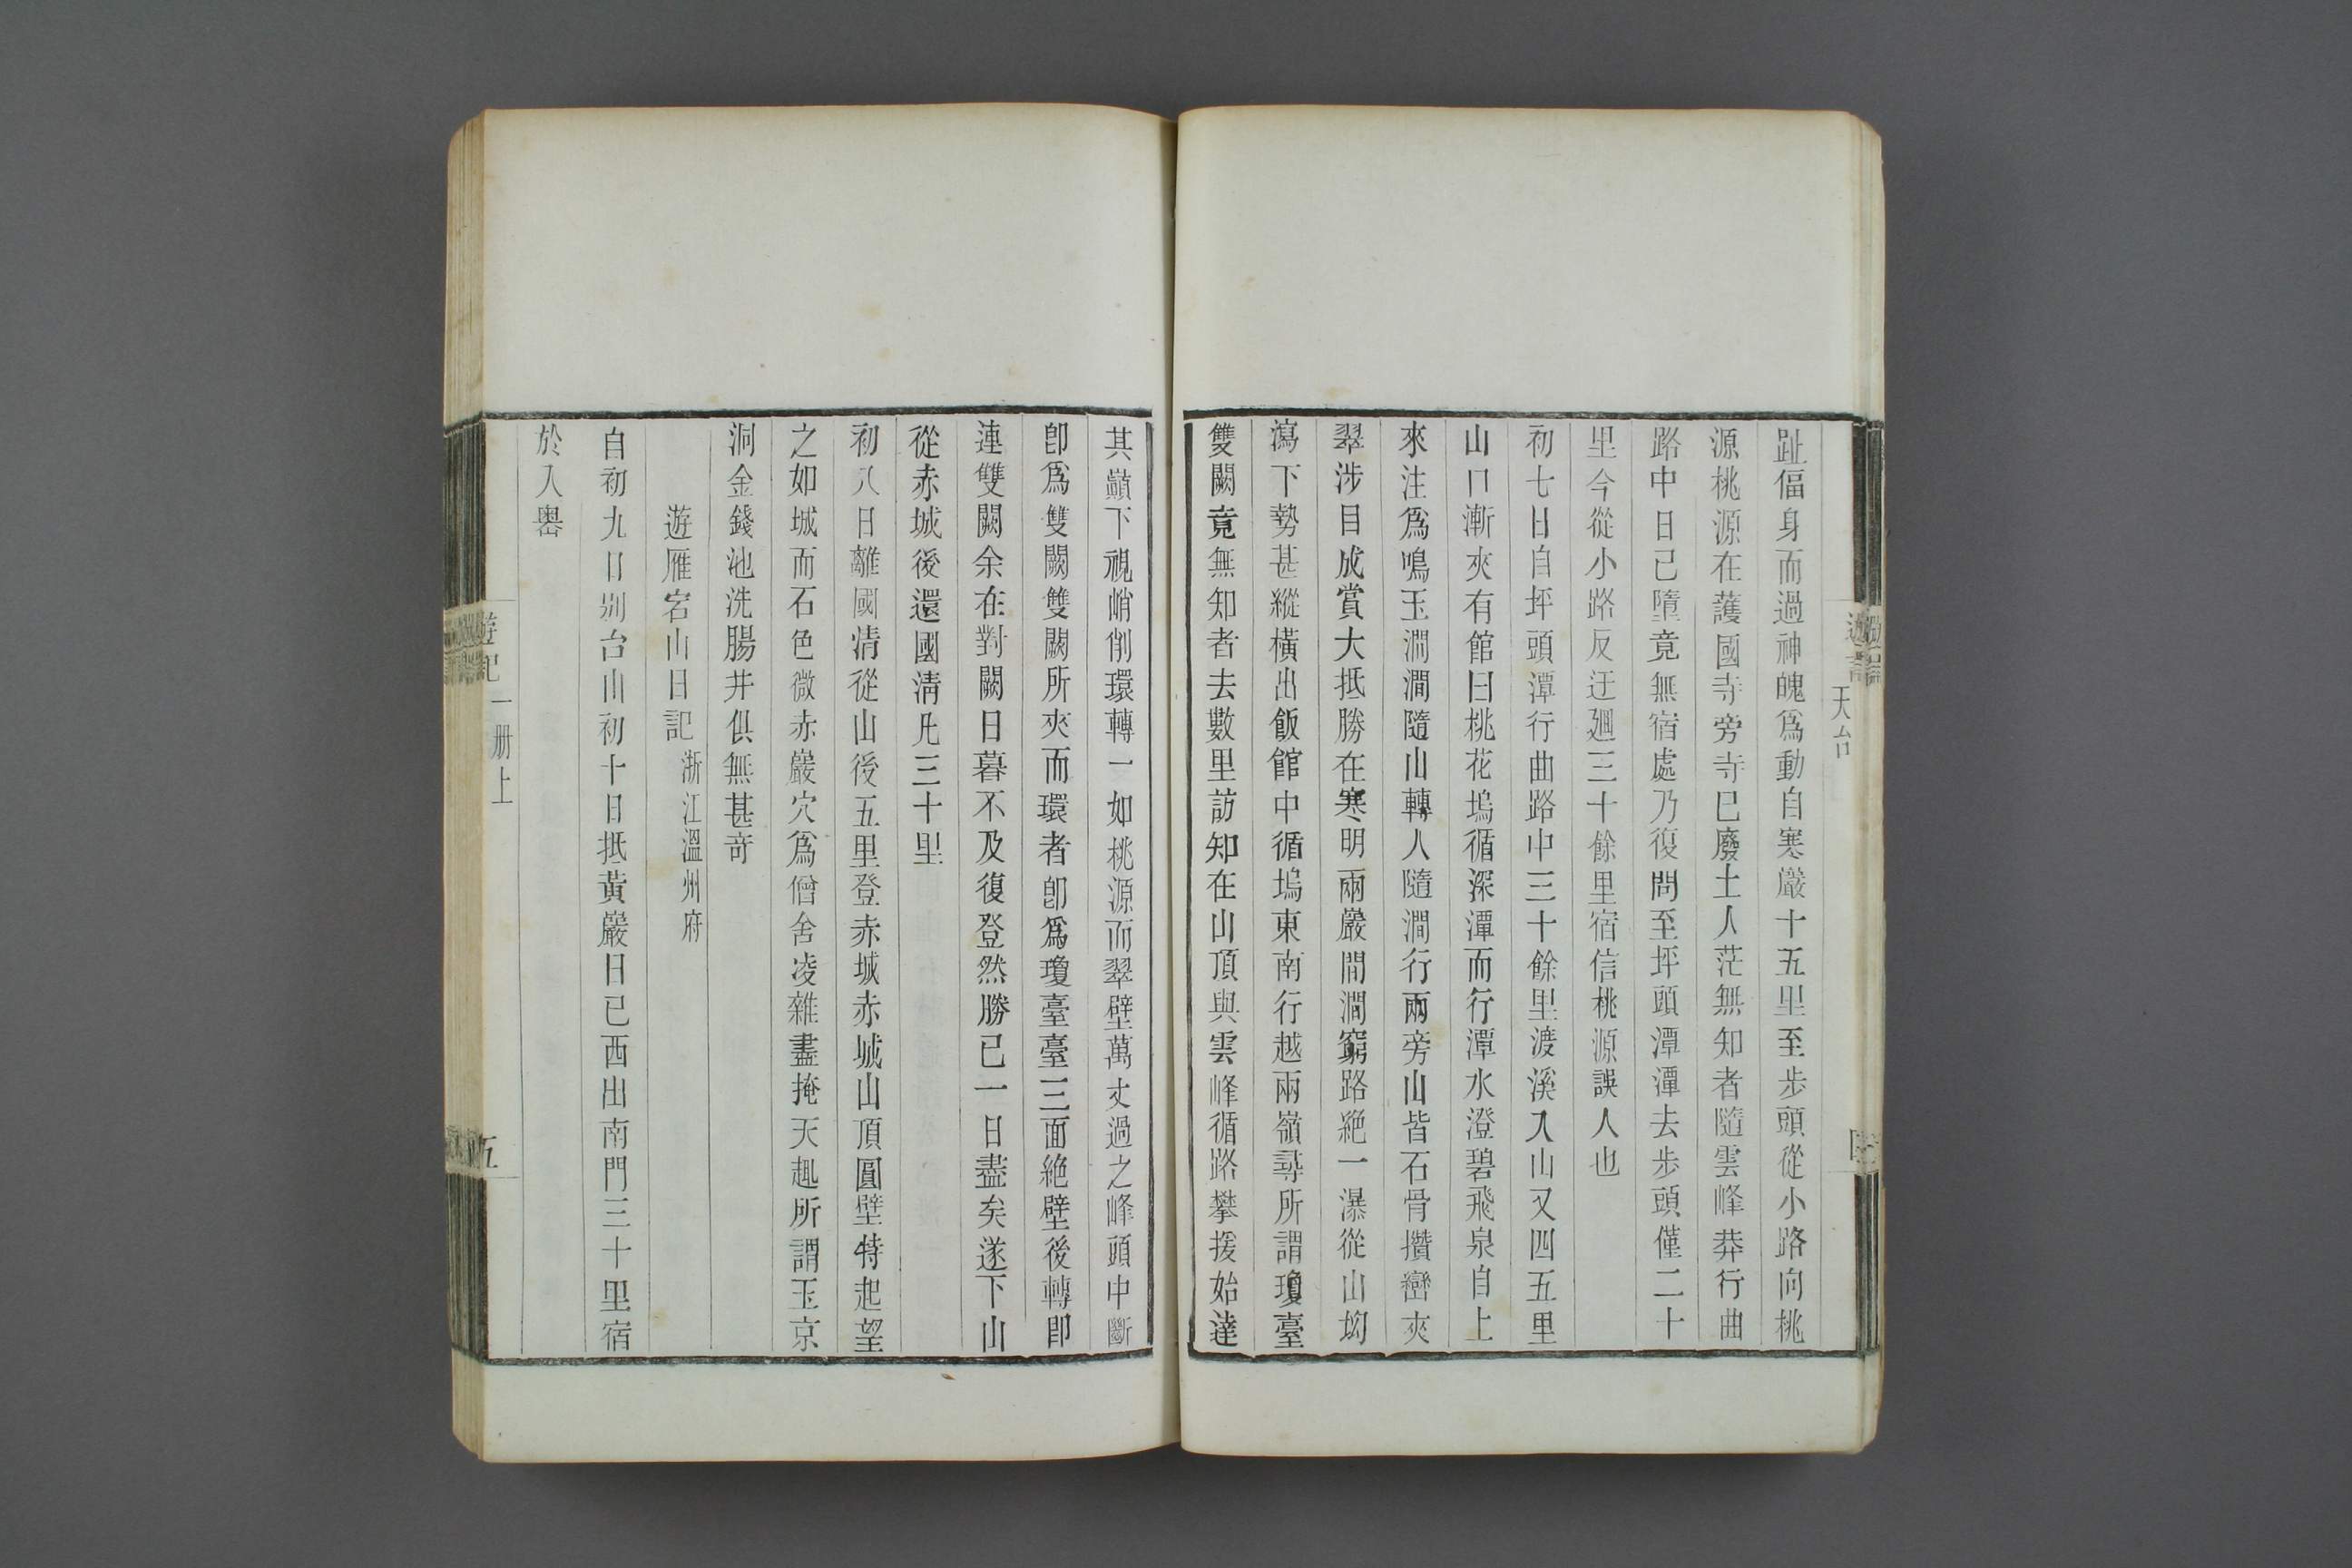 天台
趾偪身而過神魄爲動自寒巖十五里至步頭從小路向桃
源桃源在護國寺旁寺已廢土人茫無知者隨雲峰莽行曲
路中日已墮竟無宿處乃復問至坪頭潭潭去步頭僅二十
里今從小路反迂廻三十餘里宿信桃源誤人也
初七日自坪頭潭行曲路中三十餘里渡溪入山又四五里
山口漸夾有館曰桃花塢循深潭而行潭水澄碧飛泉自上
來注爲鳴玉澗澗隨山轉人隨澗行兩旁山皆石骨攢巒夾
翠涉目成賞大抵勝在寒明兩巖間澗窮路絶一瀑從山坳
瀉下勢甚縱橫出飯館中循塢東南行越兩嶺尋所謂瓊臺
雙闕竟無知者去數里訪知在山頂與雲峰循路攀援始達
其巓下視峭削環轉一如桃源而翠壁萬丈過之峰頭中斷
卽爲雙闕雙闕所夾而環者卽爲瓊臺臺三面絶壁後轉卽
連雙闕余在對闕日暮不及復登然勝已一日盡矣遂下山
從赤城後還國淸凡三十里
初八日離國淸從山後五里登赤城赤城山頂圓壁特起望
之如城而石色微赤巖穴爲僧舍凌雜盡掩天趣所謂玉京
洞金錢池洗腸井俱無甚奇
遊雁宕山日記 浙江溫州府
自初九日別台山初十日抵黃巖日已西出南門三十里宿
於八嶴
遊記一册上
五